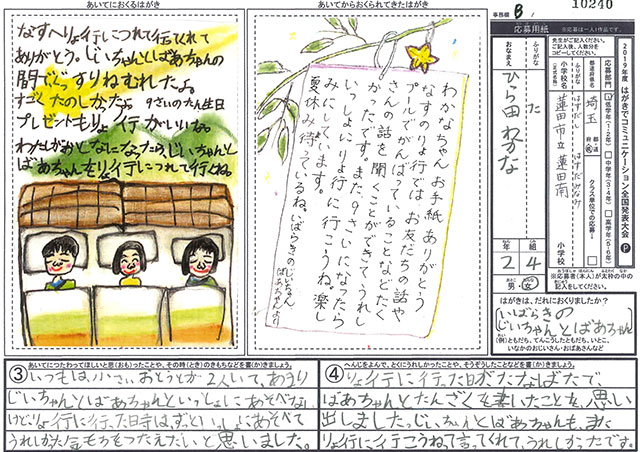 事務欄
B
10240
あいてにおくるはがき
なすへりょ行につれて行ってくれて
ありがとう。じいちゃんとばあちゃんの
間でぐっすりねむれたよ。
すごくたのしかったよ。9さいのたん生日
プレゼントもりょ行がいいな。
わたしがおとなになったら、じいちゃんと
ばあちゃんをりょ行につれて行くね。
あいてからおくられてきたはがき
わかなちゃん お手紙 ありがとう
なすのりょ行では、お友だちの話や
プールでがんばっていることなどたく
さんの話を聞くことができてうれし
かったです。また9さいになったら
いっしょに、りょ行に行こうね。楽し
みにしてます。
夏休み待っているね。いばらきのじいちゃん
ばあちゃんより
応募用紙
※応募は一人1作品です。
先生がご記入ください。
ご記入後、人数分を
コピーしてください。
2019年度 はがきでコミュニケーション全国発表大会
P
応募部門
低学年(1-2年)
中学年(3-4年)
高学年(5-6年)
クラス単位での応募
都道府県名
埼玉
都・道
府・県
ふりがな
小学校名
(正式名称)
はすだしりつ はすだみなみ
蓮田市立 蓮田南
小学校
ふりがな
おなまえ
た
ひら田 わかな
年
2
組
4
男・女
※応募者(本人)が太枠の中の
記入をしてください。
はがきは、だれにおくりましたか?
いばらきの
じいちゃんとばあちゃん
(例)ともだち、てんこうしたともだち、いとこ、
いなかのおじいさん・おばあさんなど
あいてにつたわってほしいと思(おも)ったことや、その時(とき)のきもちなどを書(か)きましょう。
③いつもは、小さいおとうとが2人いて、あまり
じいちゃんとばあちゃんといっしょにあそべない
けどりょ行に行った時は、ずっといっしょにあそべて
うれしかった気もちをつたえたいと思いました。
へんじをよんで、とくにうれしかったことや、そうぞうしたことなどを書(か)きましょう。
④りょ行に行った日がたなばたで、
ばあちゃんとたんざくを書いたことを、思い
出しました。じいちゃんとばあちゃんも、また
りょ行に行こうねって言ってくれて、うれしかったです。